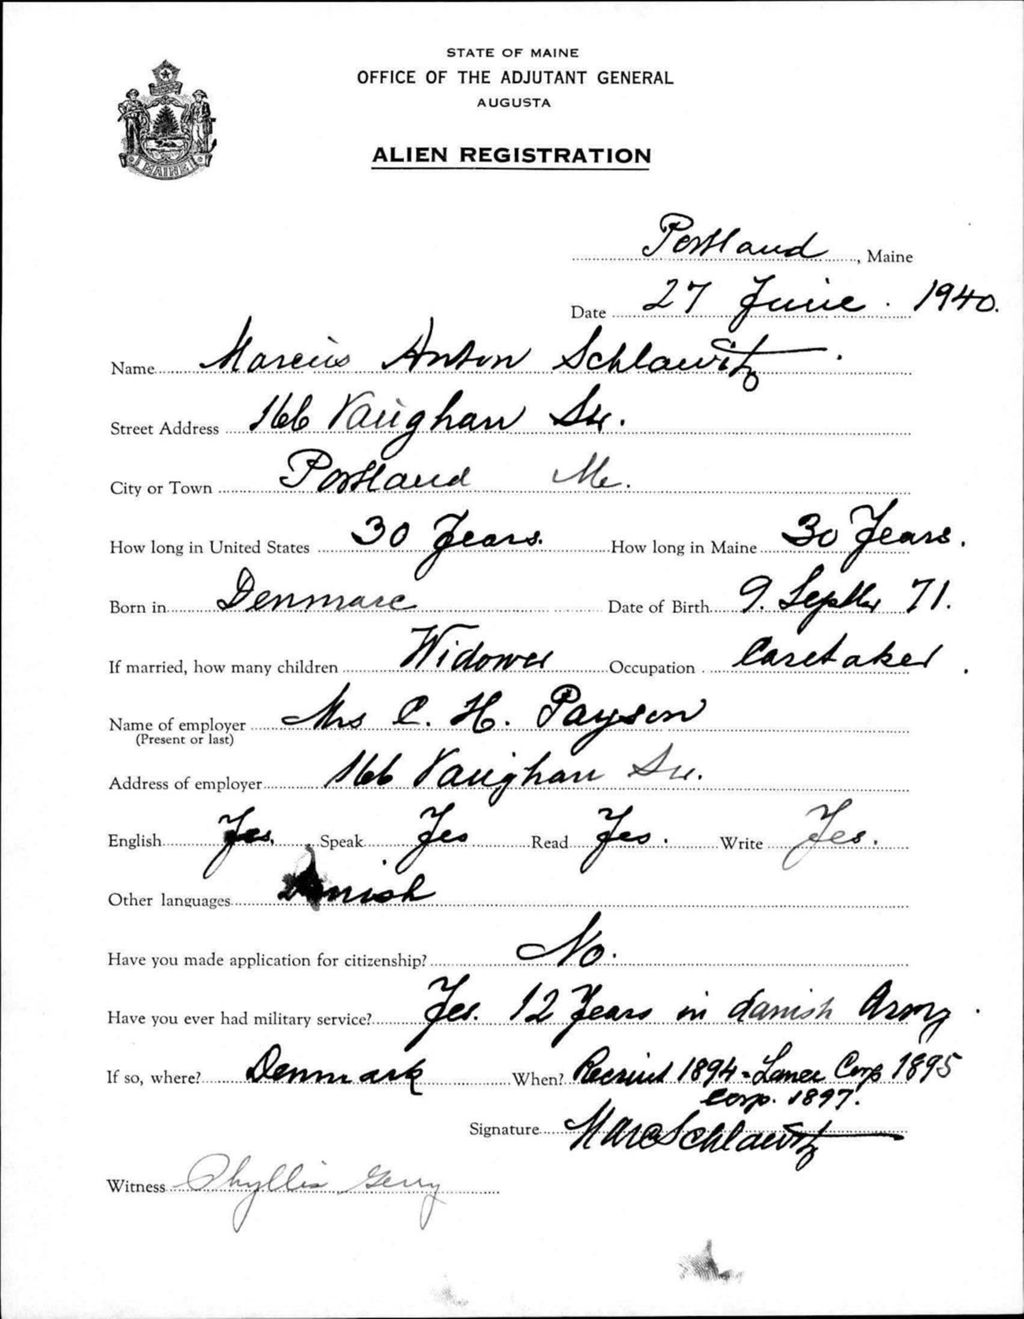 STATE OF MAINE
OFFICE OF THE ADJUTANT GENERAL
AUGUSTA
ALIEN REGISTRATION
MAINE
Portland, Maine
Date 27 June. 1940.
Name Marcius Anton Schlawitz.
Street Address 166 Vaughan Str.
City or Town Portland Me.
How long in United States 30 Years. How long in Maine 30 Years.
Born in Denmarc Date of Birth 9. Septbr 71.
If married, how many children Widower Occupation Caretaker.
Name of employer Mrs C. H. Payson
(Present or last)
Address of employer 166 Vaughan Str.
English Yes. Speak Yes Read Yes. Write Yes.
Other languages Danish
Have you made application for citizenship? No.
Have you ever had military service? Yes. 12 Years in danish Army.
If so, where? Denmark When? Recruit 1894 - Lance Corp 1895
Corp. 1897.
Signature Marc Schlawitz
Witness Phyllis Gerry